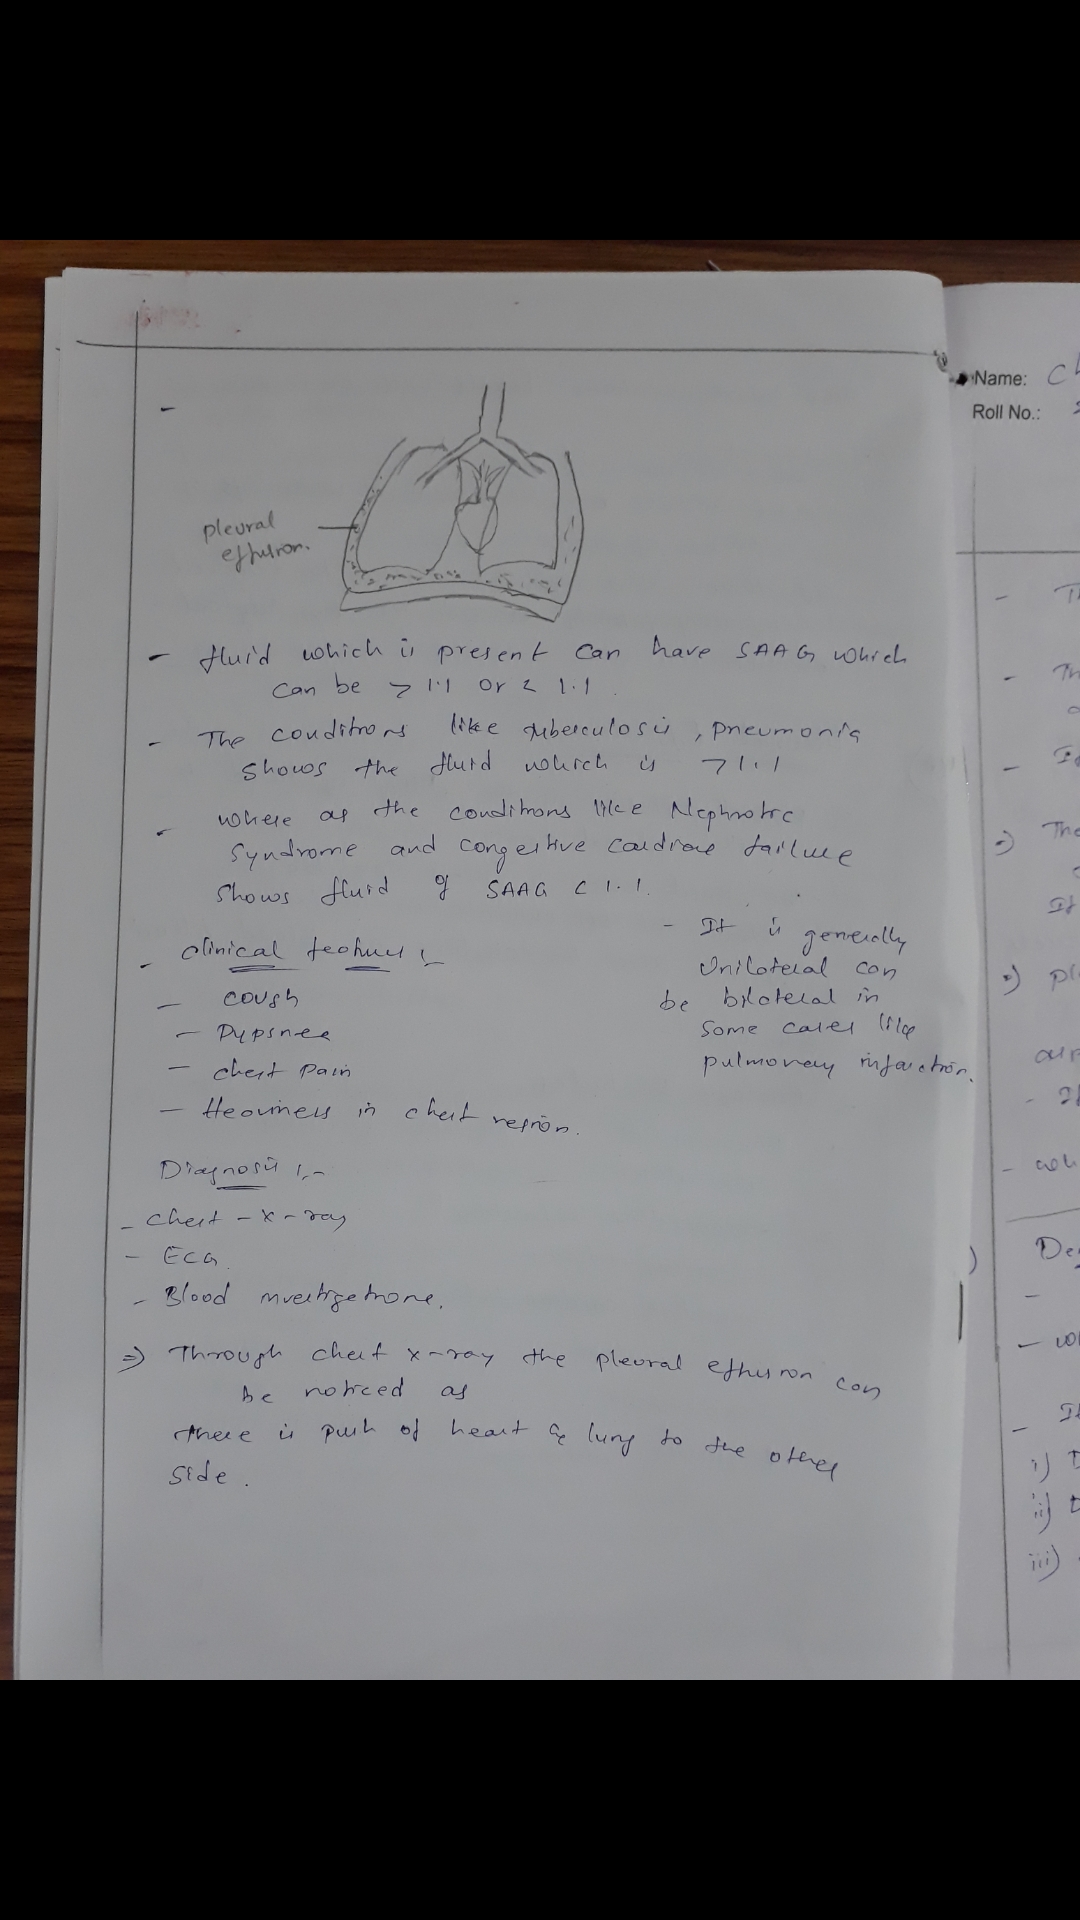 Name: C
Roll No.:
-
pleural
effusion.
- fluid which is present can have SAAG which
can be > 1.1 or < 1.1.
- The conditions like tuberculosis, pneumonia
shows the fluid which is > 1.1
- where as the conditions like Nephrotic
Syndrome and congestive cardiac failure
shows fluid of SAAG < 1.1.
- clinical features :-
- cough
- Dypsnea
- chest pain
- Heaviness in chest region.
- It is generally
Unilateral can
be bilateral in
some cases like
pulmonary infarction.
Diagnosis :-
- chest - x - ray
- ECG.
- Blood investigations.
=> Through chest x-ray the pleural effusion can
be noticed as
there is push of heart & lung to the other
side.
- Th
- Th
- It
=) The
It
=) pl
-
- wh
) De
-
- wh
- It
i) D
ii) D
iii)